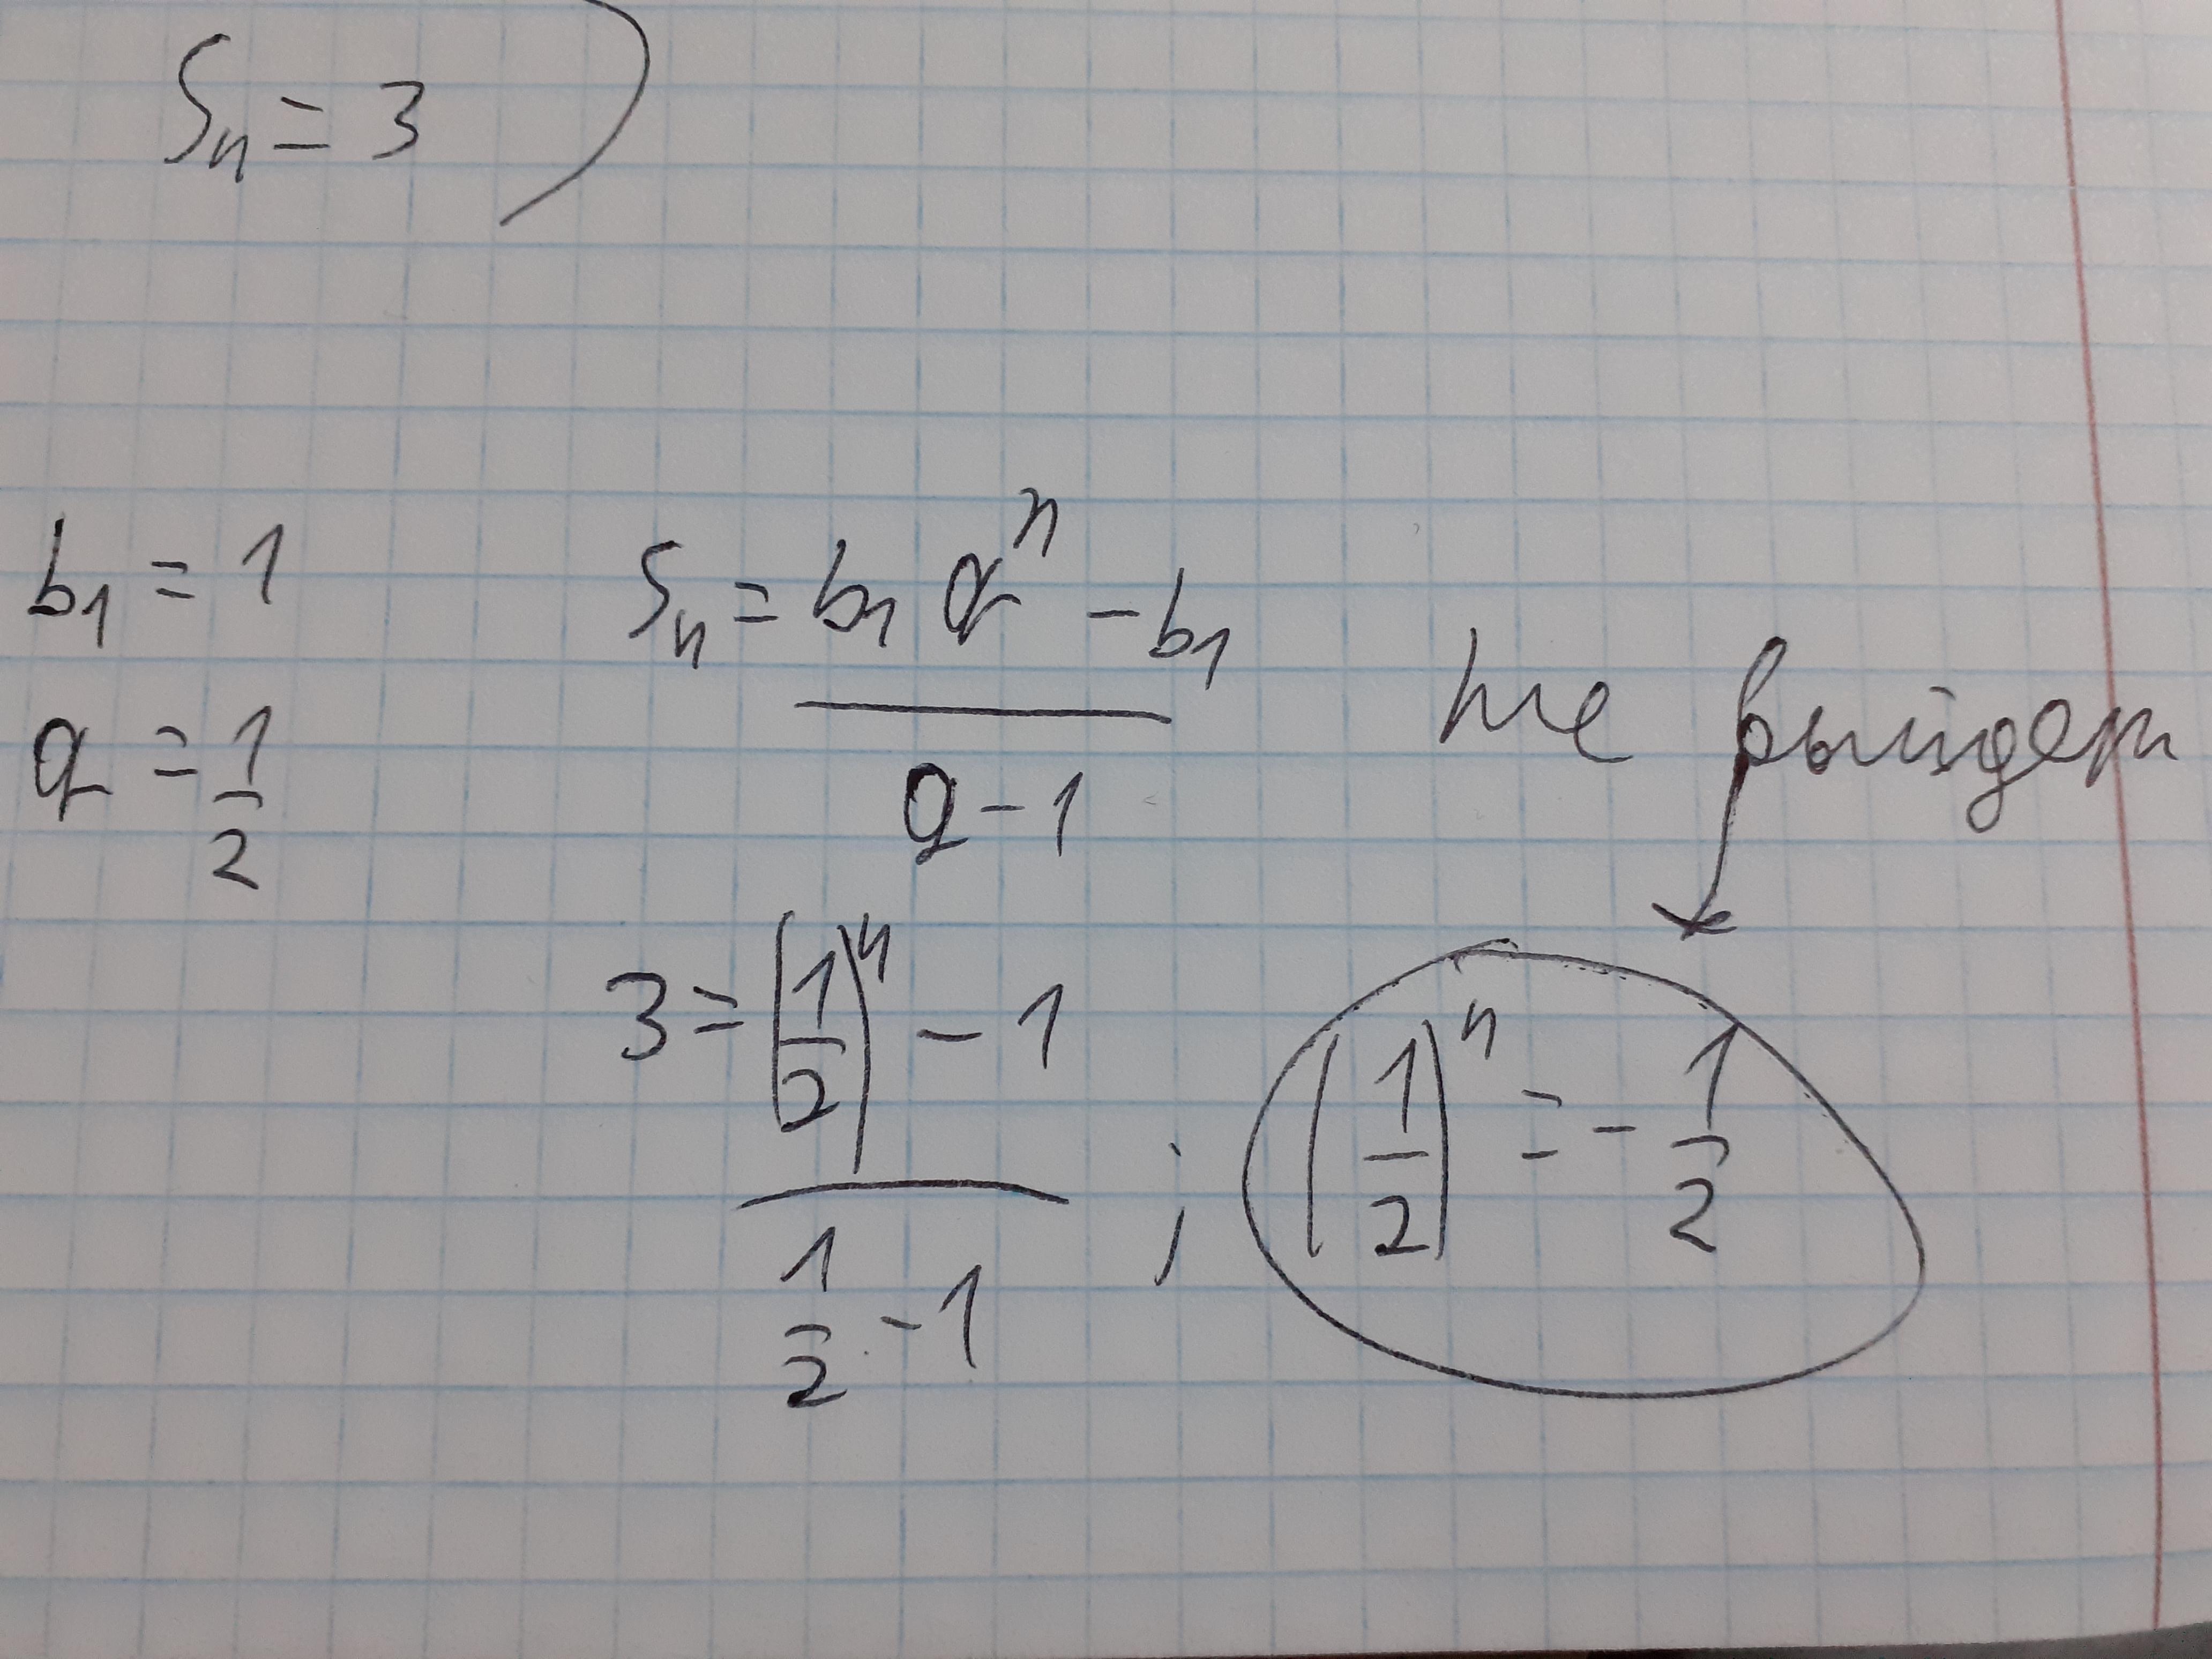 Sn = 3
b1 = 1
q = 1/2
Sn = (b1 q^n - b1)/(q - 1)
не выйдет
3 = ((1/2)^n - 1)/(1/2 - 1) ; (1/2)^n = - 1/2